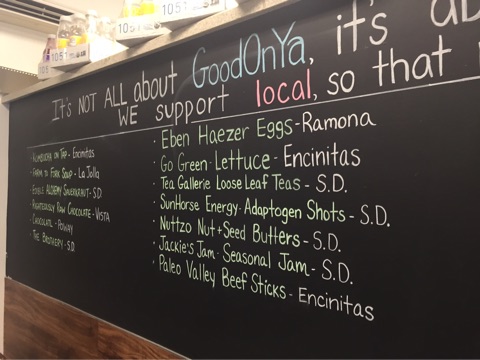 1051 1051 1051
It's NOT ALL about GoodOnYa, it's
WE support local, so that
· KOMBUCHA ON TAP - Encinitas
· FARM TO FORK SOUP - La Jolla
· EDIBLE ALCHEMY SAUERKRAUT - S.D
· RIGHTEOUSLY RAW CHOCOLATE - VISTA
· CHOCOLATL - POWAY
· THE BROTHERY - S.D
· Eben Haezer Eggs - Ramona
· Go Green Lettuce - Encinitas
· Tea Gallerie Loose Leaf Teas - S.D.
· SunHorse Energy Adaptogen Shots - S.D.
· Nuttzo Nut + Seed Butters - S.D.
· Jackie's Jam Seasonal Jam - S.D.
· Paleo Valley Beef Sticks - Encinitas